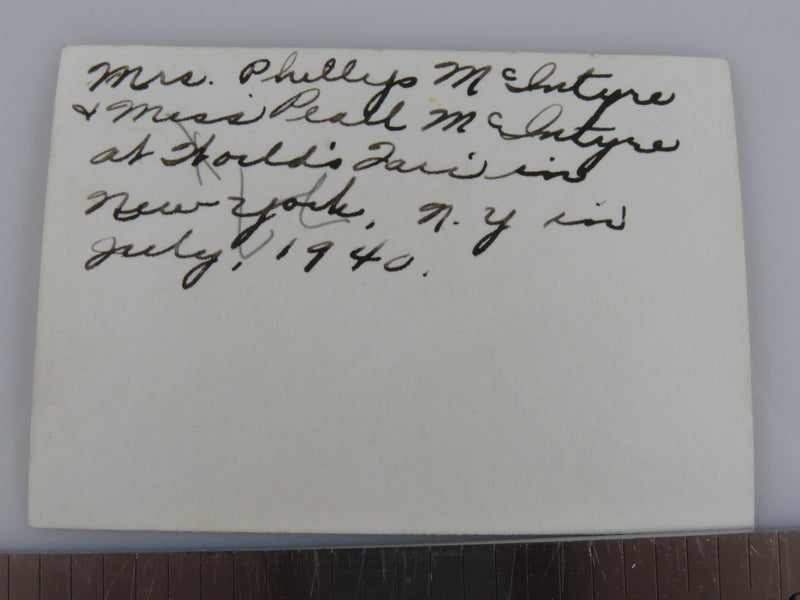 Mrs. Phellys McIntyre
& Miss Pearl McIntyre
at World's Fair in
New York, N.Y in
July, 1940.